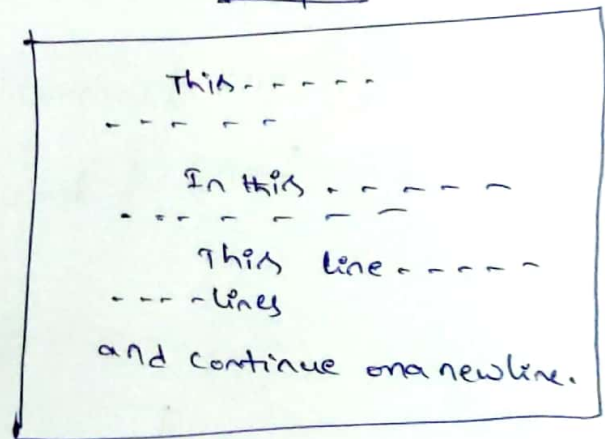 This - - - - -
- - - - -
In this - - - - -
- - - - - - -
This line - - - - -
- - - - lines
and continue on a new line.